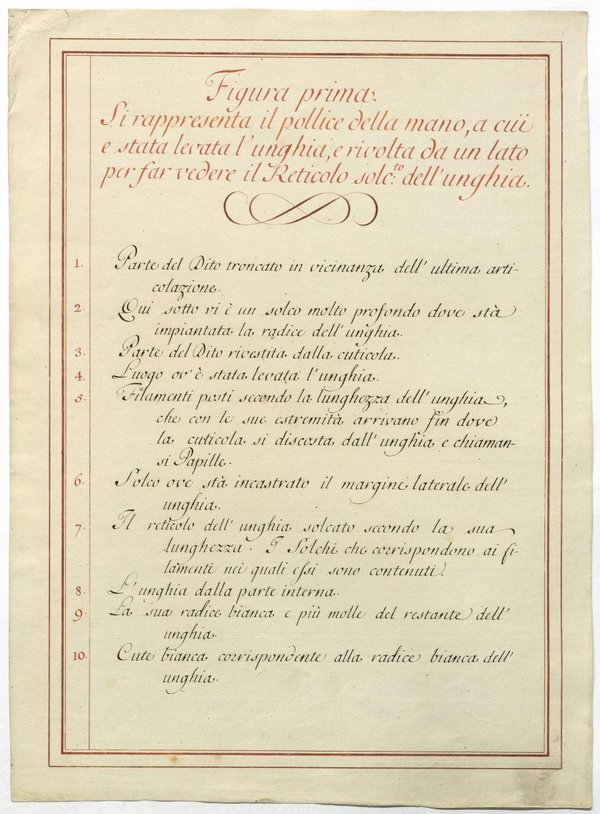 Figura prima.
Si rappresenta il pollice della mano, a cüi
e stata levata l'unghia, e rivolta da un lato
per far vedere il Reticolo solc.to dell'unghia.
1. Parte del Dito troncato in vicinanza dell' ultima arti-
colazione.
2. Qui sotto vi è un solco molto profondo dove stà
impiantata la radice dell'unghia.
3. Parte del Dito rivestita dalla cuticola.
4. Luogo ov'è stata levata l'unghia.
5. Filamenti posti secondo la lunghezza dell'unghia,
che con le sue estremità arrivano fin dove
la cuticola si discosta dall'unghia e chiaman-
si Papille.
6. Solco ove stà incastrato il margine laterale dell'
unghia.
7. Il reticolo dell'unghia solcato secondo la sua
lunghezza. I Solchi che corrispondono ai fi-
lamenti nei quali essi sono contenuti.
8. L'unghia dalla parte interna.
9. La sua radice bianca e più molle del restante dell'
unghia.
10. Cute bianca corrispondente alla radice bianca dell'
unghia.